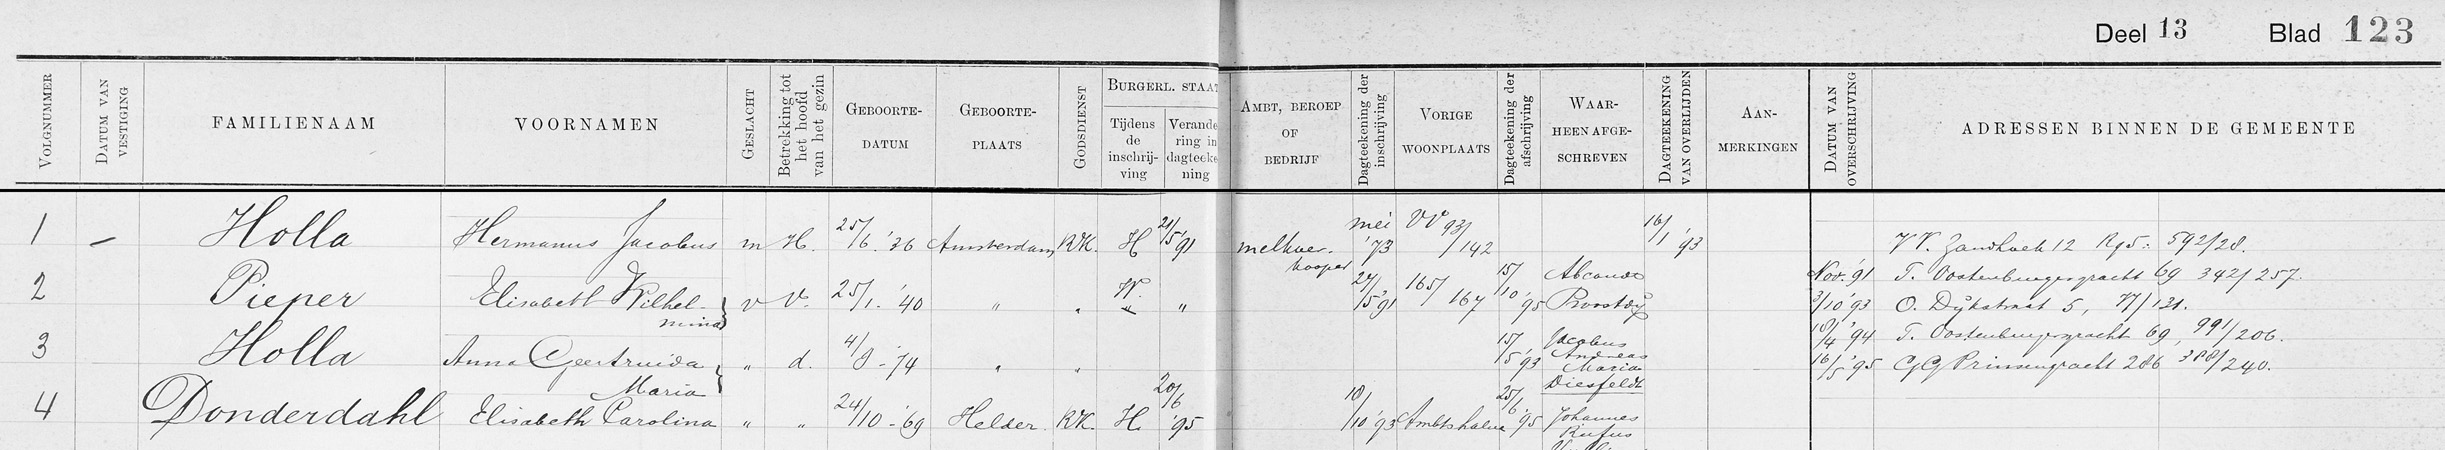 Deel 13 Blad 123
VOLGNUMMER
DATUM VAN VESTIGING
FAMILIENAAM
VOORNAMEN
GESLACHT
Betrekking tot het hoofd van het gezin
GEBOORTE-
DATUM
GEBOORTE-
PLAATS
GODSDIENST
BURGERL. STAAT
Tijdens
de
inschrij-
ving
Verande-
ring in
dagteeke-
ning
AMBT, BEROEP
OF
BEDRIJF
Dagteekening der inschrijving
VORIGE
WOONPLAATS
Dagteekening der afschrijving
WAAR-
HEEN AFGE-
SCHREVEN
DAGTEEKENING VAN OVERLIJDEN
AAN-
MERKINGEN
DATUM VAN OVERSCHRIJVING
ADRESSEN BINNEN DE GEMEENTE
1 — Holla Hermanus Jacobus m H. 25/6 '36 Amsterdam RK. H 21/5 '91 melkver-
kooper mei '73 VV 93/142 16/1 '93 VV. Zandhoek 12 592/28.
2 Pieper Elisabeth Wilhel-
mina v V. 25/1 '40 " " W. " 21/5 '91 165/167 15/10 '95 Abcoude
Proostdij
Nov. '91 T. Oostenburgergracht 69 342/257.
3/10 '93 O. Dijkstraat 5, 77/131.
3 Holla Anna Geertruida
Maria " d. 4/8 - 74 " " 15/5 '93 Jacobus
Andreas
Maria
Diesfeldt
18/4 '94 T. Oostenburgergracht 69, 991/206.
16/5 '95 GG Prinsengracht 286 388/240.
4 Donderdahl Elisabeth Carolina " " 24/10 - '69 Helder RK. H. 20/6 '95 18/10 '93 Ambtshalve 25/6 '95 Johannes
Rufus